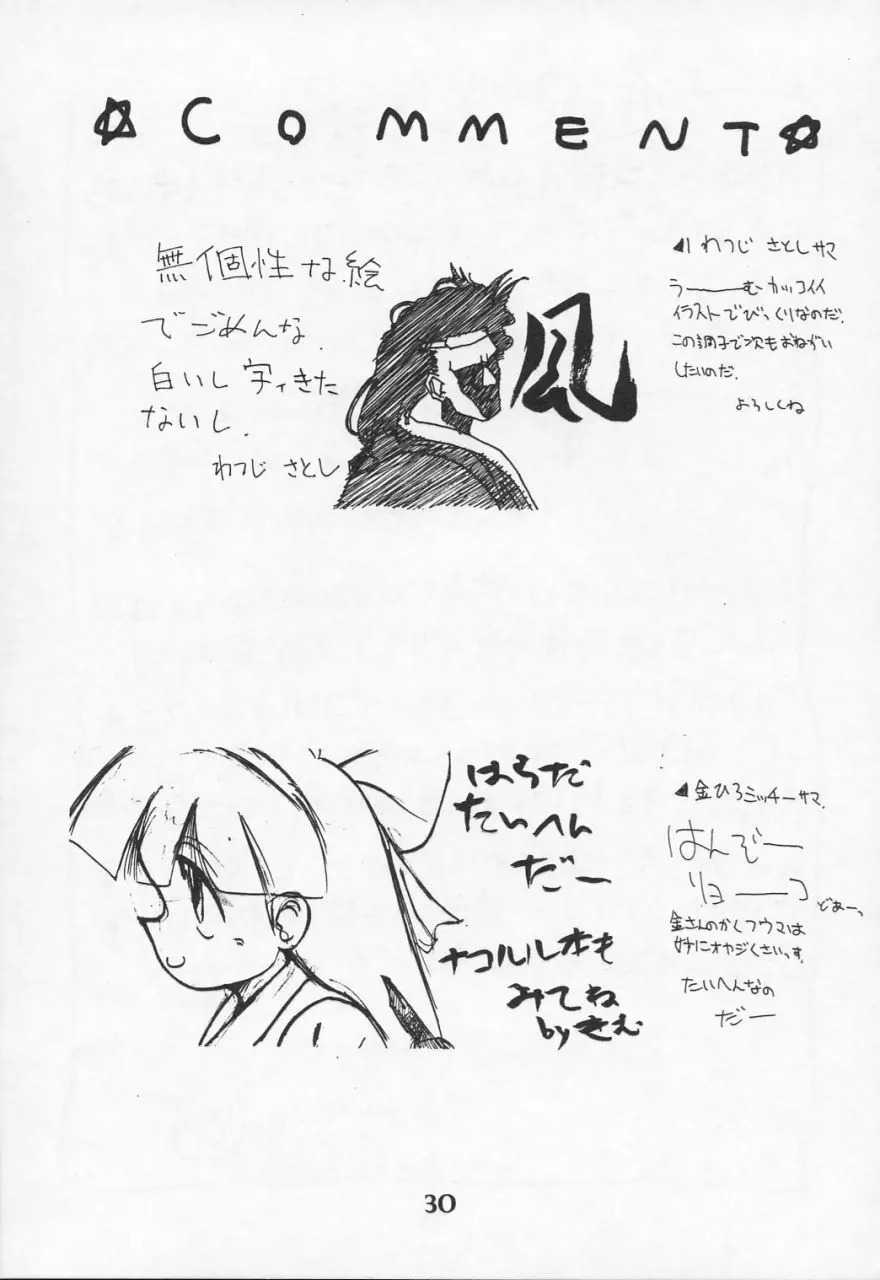 ☆COMMENT☆
無個性な絵
でごめんな.
白いし字ィきた
ないし.
わつじ さとし
風
◀わつじ さとしサマ
うーーむカッコイイ
イラストでびっくりなのだ.
この調子で次もおねがい
したいのだ.
よろしくね
はろだ
たいへん
だー
ナコルル本も
みてね
byきむ
◀金ひろミッチーサマ.
はんぞー
リョーコ
どあーっ
金さんのかくフウマは
妙にオヤジくさいっす.
たいへんなの
だー
30